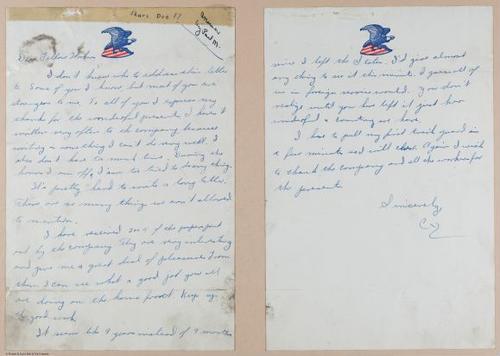 Dear Fellow Workers
I don't know who to address this letter
to. Some of you I know, but most of you are
strangers to me. To all of you I express my
thanks for the wonderful presents. I haven't
written very often to the company because
writing is something I can't do very well. I
also don't have to much time. During the
hours I'm off, I am too tired to do any thing.
It's pretty hard to write a long letter.
There are so many things we aren't allowed
to mention.
I have received some of the papers put
out by the company. They are very interesting
and give me a great deal of pleasure. From
them I can see what a good job you all
are doing on the home front. Keep up
the good work.
It seems like 9 years instead of 9 months
since I left the States. I'd give almost
any thing to see it this minute. I guess all of
us in foreign service would. You don't
realize until you have left it just how
wonderful a country we have.
I have to pull my first trick guard in
a few minutes so will close. Again I wish
to thank the company and all the workers for
the presents.
Sincerely,